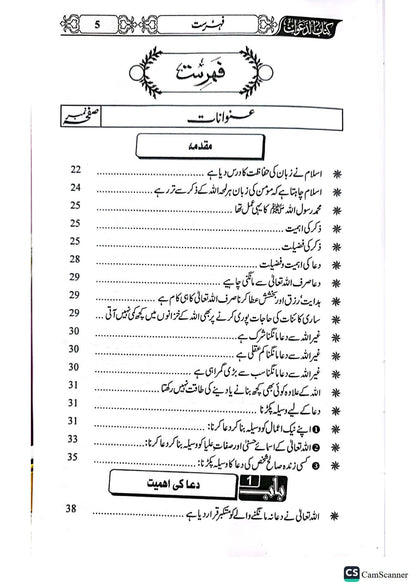 کتاب الدعوات فہرست 5
فہرست
عنوانات صفحہ نمبر
مقدمہ
اسلام نے زبان کی حفاظت کا درس دیا ہے 22
اسلام چاہتا ہے کہ مؤمن کی زبان ہر لمحہ اللہ کے ذکر سے تر رہے 24
محمد رسول اللہ ﷺ کا یہی عمل تھا 25
ذکر کی اہمیت 25
ذکر کی فضیلت 25
دعا کی اہمیت و فضیلت 28
دعا صرف اللہ تعالیٰ سے مانگنی چاہیے 29
ہدایت، رزق اور بخشش عطا کرنا صرف اللہ تعالیٰ کا ہی کام ہے 29
ساری کائنات کی حاجات پوری کرنے پر بھی اللہ کے خزانوں میں کچھ کمی نہیں آتی 29
غیر اللہ سے دعا مانگنا شرک ہے 30
غیر اللہ سے دعا مانگنا کم عقلی ہے 30
غیر اللہ سے دعا مانگنا سب سے بڑی گمراہی ہے 30
اللہ کے علاوہ کوئی بھی کچھ بنانے یا دینے کی طاقت نہیں رکھتا 31
دعا کے لیے وسیلہ پکڑنا 31
❶ اپنے نیک اعمال کو وسیلہ بنا کر دعا کرنا: 31
❷ اللہ تعالیٰ کے اسمائے حسنیٰ اور صفات علیا کو وسیلہ بنا کر دعا کرنا: 33
❸ کسی زندہ صالح شخص کی دعا کا وسیلہ پکڑنا: 35
باب 1 دعا کی اہمیت
اللہ تعالیٰ نے دعا نہ مانگنے والے کو متکبر قرار دیا ہے 38
CS CamScanner